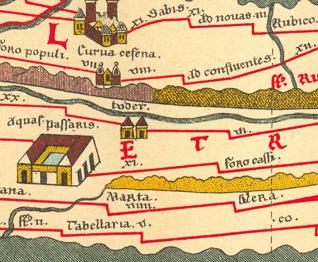 xi. Sabis. xi. ad novas. iii Rubico.
L
foro populi. Curva cesena. xi
vii viii. ad confluentes. xii.
fl. Ru
xx. tuder.
aquas passaris. vi.
E T R
xi. foro cassi.
ana. Marta. Mera.
viiii.
fl. ii. Tabellaria. v. co.